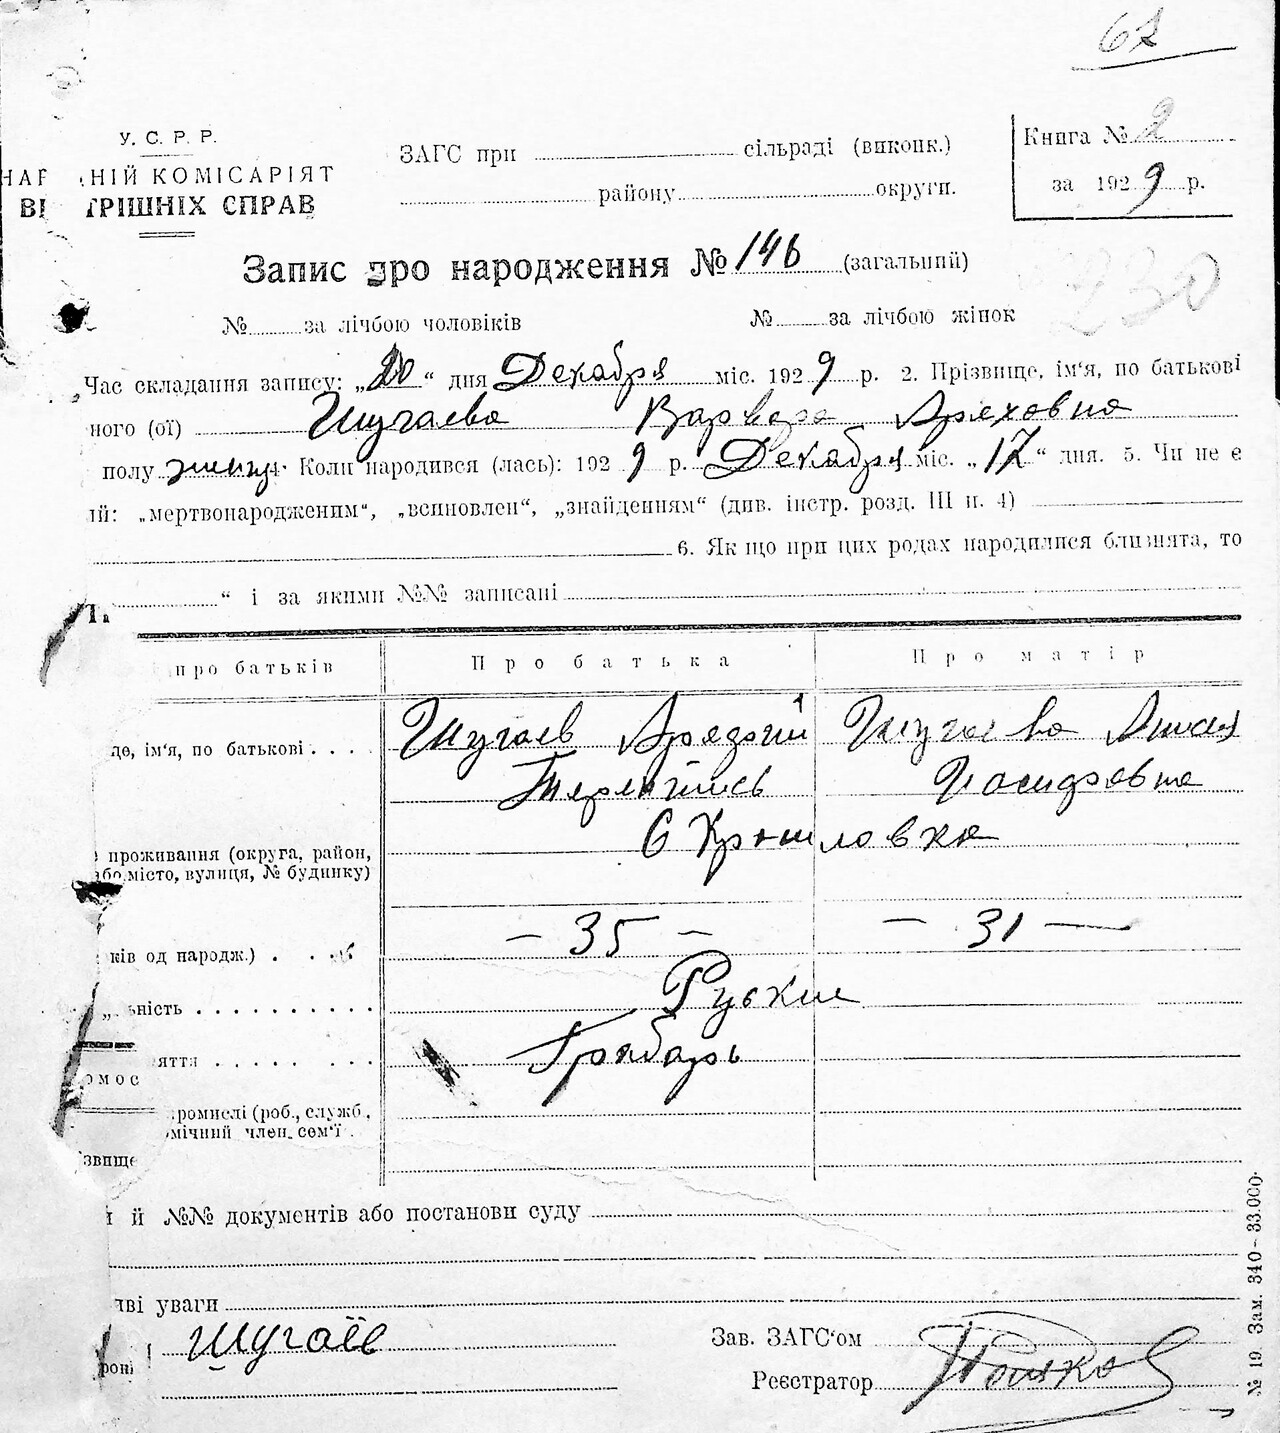 67
У. С. Р. Р.
НАР НІЙ КОМІСАРІЯТ
ВН ТРІШНІХ СПРАВ
ЗАГС при сільраді (виконк.)
району округи.
Книга № 2
за 1929 р.
Запис про народження № 146 (загальний)
230
№ за лічбою чоловіків № за лічбою жінок
Час складання запису: „20“ дня Декабря міс. 1929 р. 2. Прізвище, ім'я, по батькові
ного (ої) Шугаева Варвара
полу 4. Коли народився (лась): 1929 р. Декабря міс. „17“ дня. 5. Чи не є
ий: „мертвонародженим“, „всиновлен“, „знайденням“ (див. інстр. розд. III п. 4)
6. Як що при цих родах народилися близнята, то
“ і за якими №№ записані
про батьків Про батька Про матір
ще, ім'я, по батькові Шугаев Шугаева
Иосифовна
проживання (округа, район, С
або місто, вулиця, № будинку)
ків од народж.) — 35 — — 31 —
ьність Руские
яття Грабарь
омос
ромислі (роб., служб.,
мічний член. сем'ї
звище
і й №№ документів або постанови суду
иві уваги
роні Шугаїв
Зав. ЗАГС'ом
Реєстратор
№ 19. Зам. 340 – 33.000.